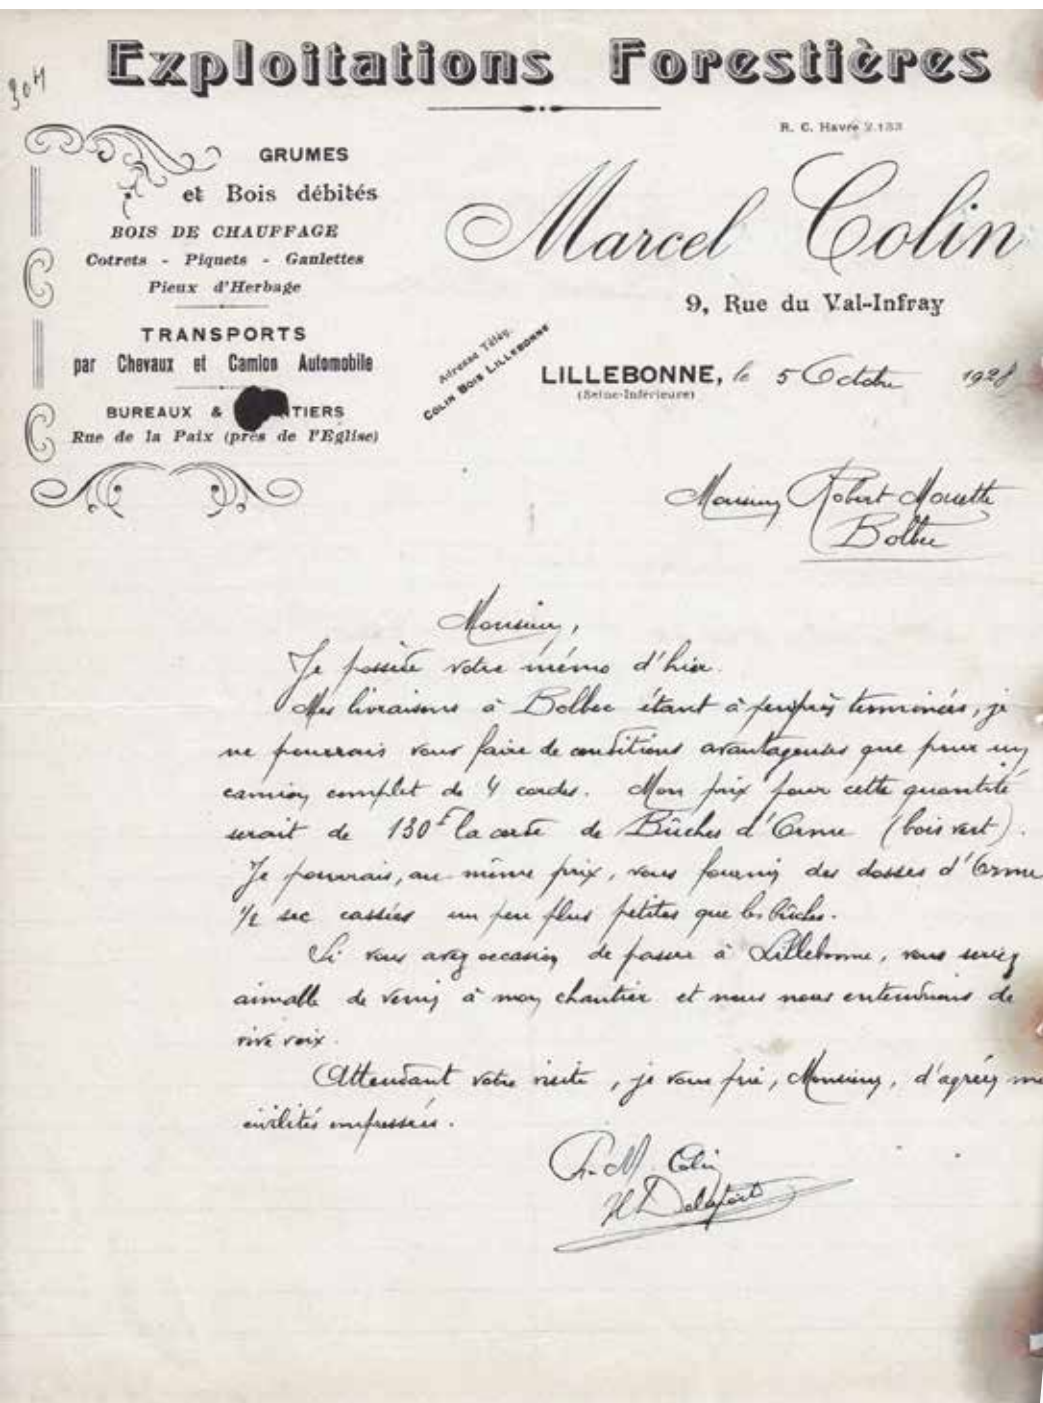 304
Exploitations Forestières
R. C. Havre 2.133
GRUMES
et Bois débités
BOIS DE CHAUFFAGE
Cotrets - Piquets - Gaulettes
Pieux d'Herbage
TRANSPORTS
par Chevaux et Camion Automobile
BUREAUX & TIERS
Rue de la Paix (près de l'Eglise)
Marcel Colin
9, Rue du Val-Infray
Adresse Télég.
COLIN BOIS LILLEBONNE
LILLEBONNE, le 5 Octobre 1928
(Seine-Inférieure)
Monsieur Robert Mouette
Bolbec
Monsieur,
Je possède votre mémo d'hier.
Mes livraisons à Bolbec étant à peu près terminées, je
ne pourrais vous faire de conditions avantageuses que pour un
camion complet de 4 cordes. Mon prix pour cette quantité
serait de 130F la corde de Bûches d'Orme (bois vert).
Je pourrais, au même prix, vous fournir des dosses d'Orme
1/2 sec cassées un peu plus petites que les bûches.
Si vous avez occasion de passer à Lillebonne, vous seriez
aimable de venir à mon chantier et nous nous entendrions de
vive voix.
Attendant votre visite, je vous prie, Monsieur, d'agréer me
civilités empressées.
Pr. M. Colin